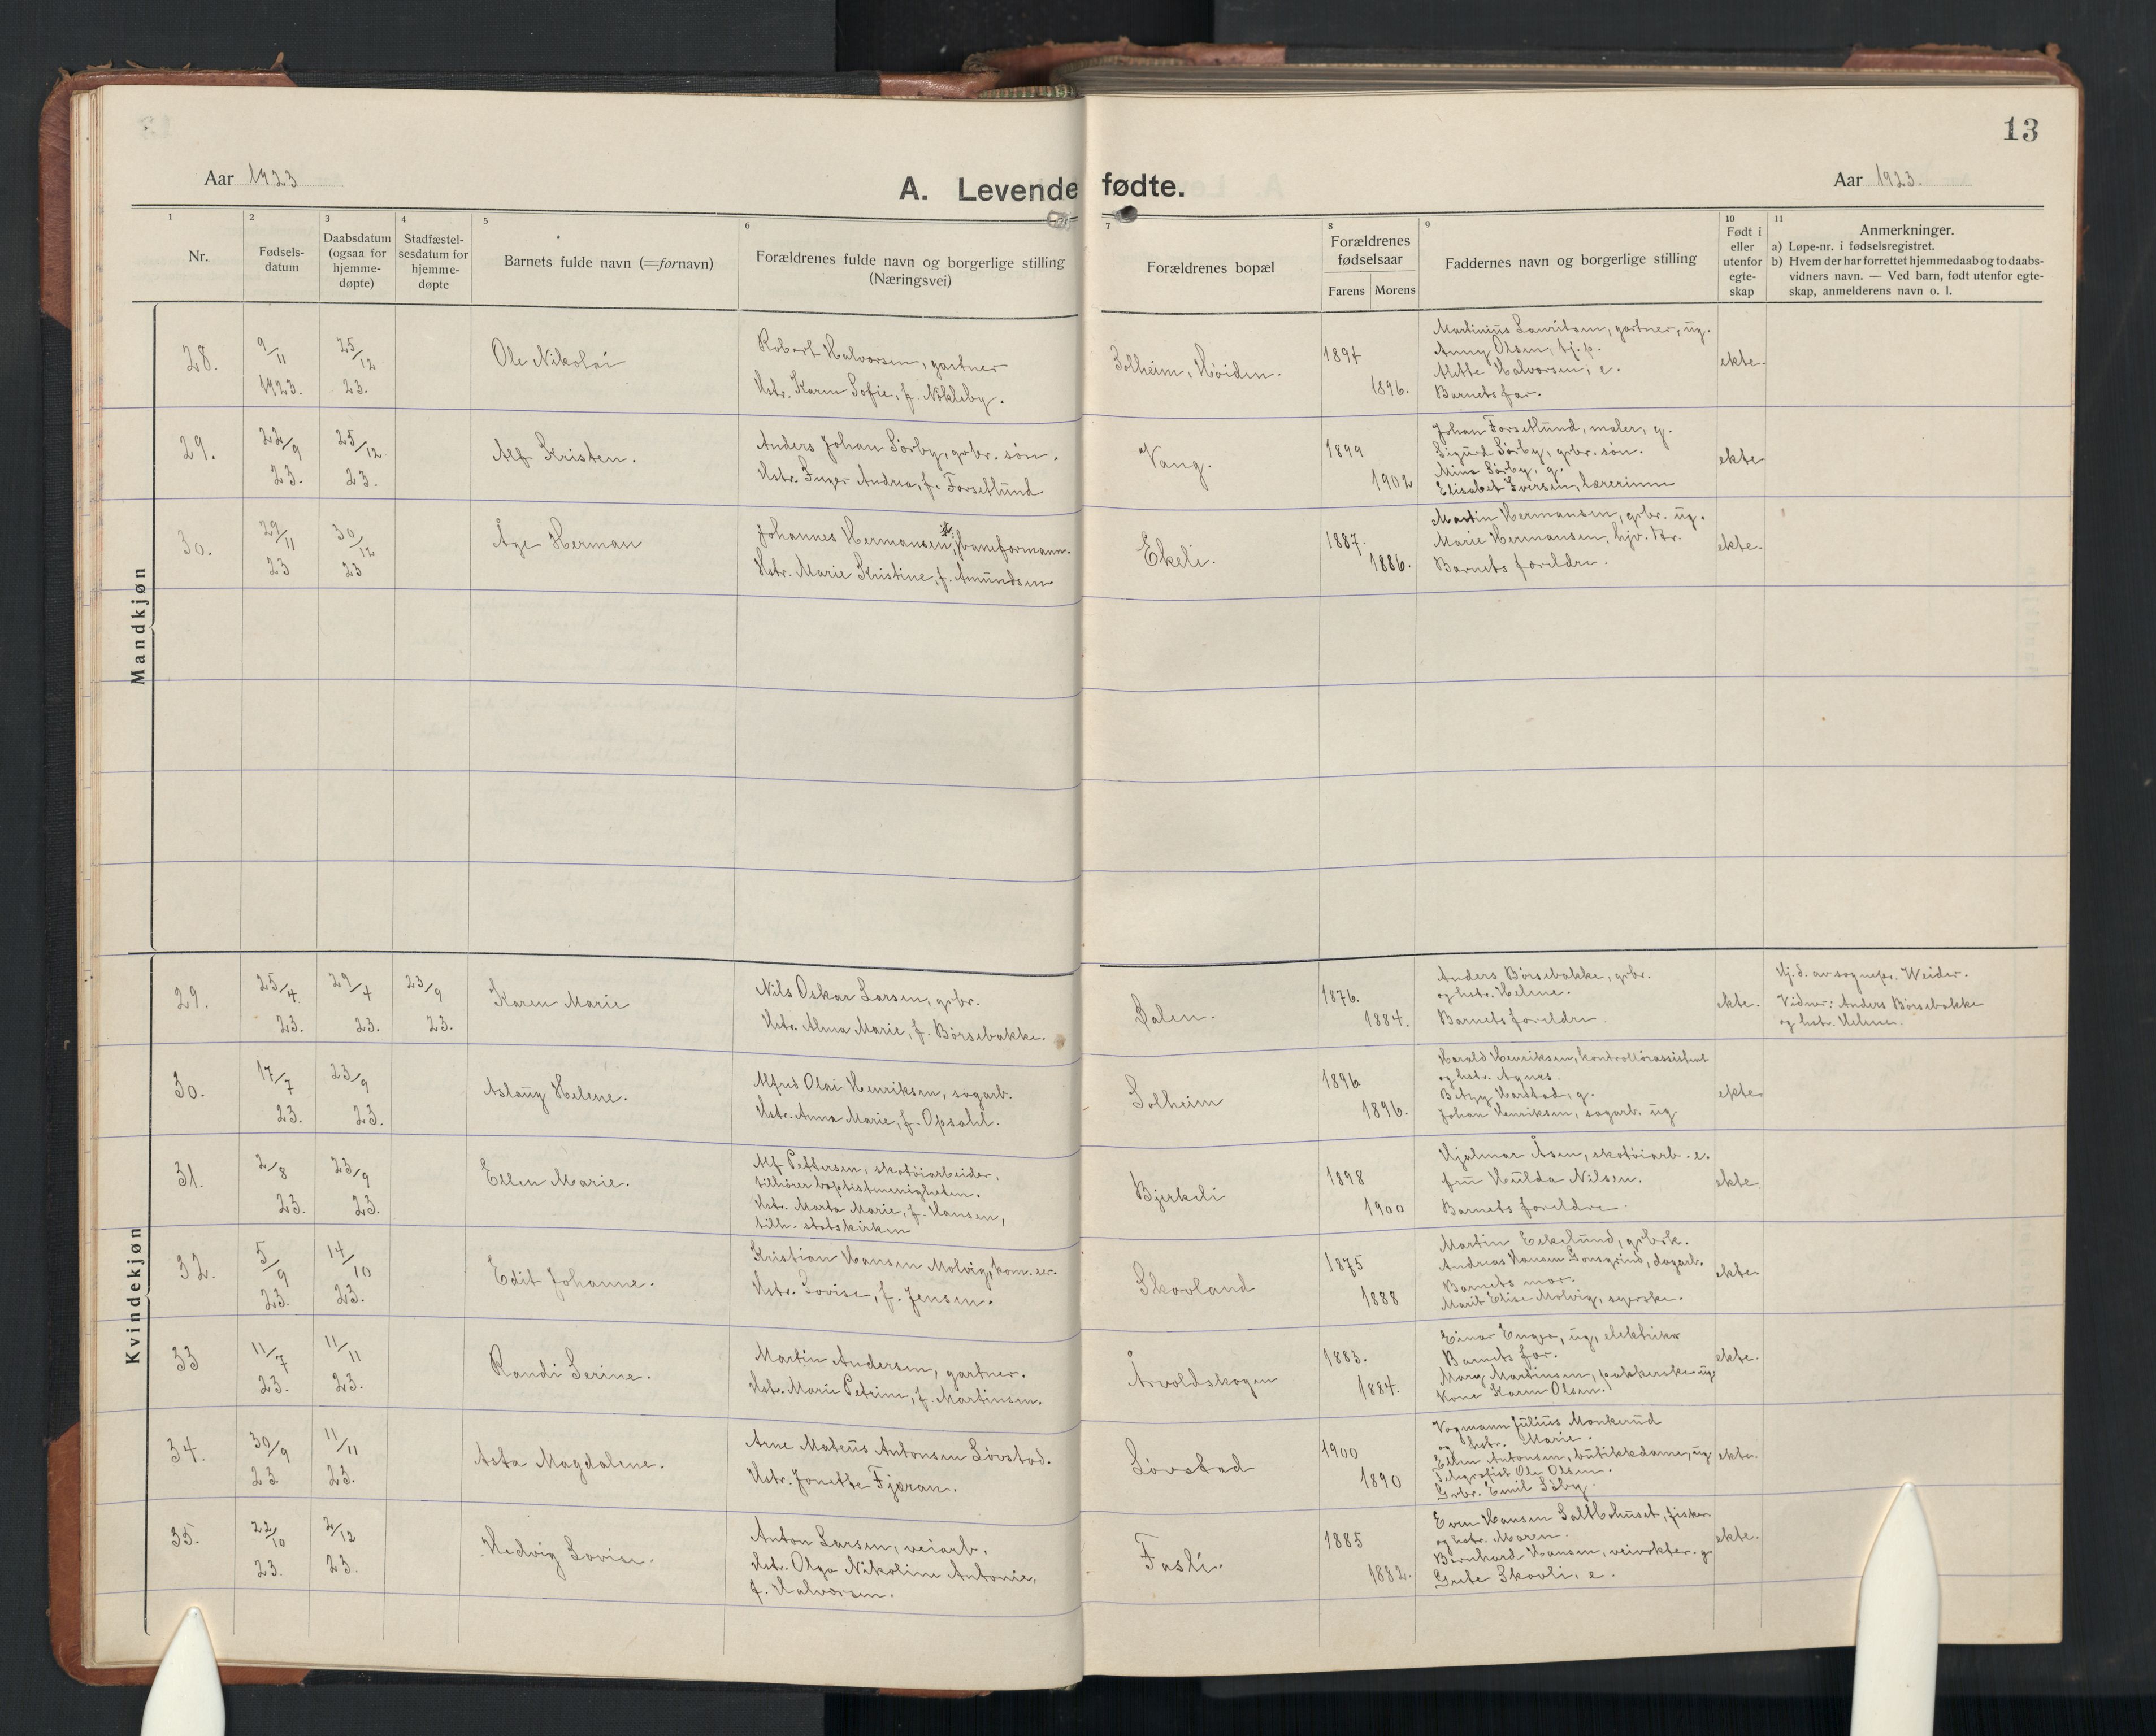 13
Aar 1923
A. Levende fødte.
Aar 1923.
1
Nr.
2
Fødsels-
datum
3
Daabsdatum
(ogsaa for
hjemme-
døpte)
4
Stadfæstel-
sesdatum for
hjemme-
døpte
5
Barnets fulde navn (=fornavn)
6
Forældrenes fulde navn og borgerlige stilling
(Næringsvei)
7
Forældrenes bopæl
8
Forældrenes
fødselsaar
Farens Morens
9
Faddernes navn og borgerlige stilling
10
Født i
eller
utenfor
egte-
skap
11
Anmerkninger.
a) Løpe-nr. i fødselsregistret.
b) Hvem der har forrettet hjemmedaab og to daabs-
vidners navn. — Ved barn, født utenfor egte-
skap, anmelderens navn o. l.
Mandkjøn
28.
9/11
1923.
25/12
23.
Ole Nikolai
Robert Halvorsen, gartner
Hstr. Karen Sofie, f. Nøkleby.
Solheim, Høiden.
1894
1896.
Martinius Lauritsen, gartner, ug.
Anny Olsen, tj.p.
Alette Halvorsen, e.
Barnets far.
ekte.
29.
22/9
23.
25/12
23.
Alf Kristen.
Anders Johan Sørby, grbr. søn.
Hstr. Inger Andrea, f. Forsetlund.
Vang.
1899
1902
Johan Forsetlund, maler, g.
Sigurd Sørby, grbr. søn.
Mina Sørby, g.
Elisabet Iversen, lærerinne
ekte
30.
29/11
23
30/12
23
Åge Herman
Johannes Hermansen, jbaneformann.
Hstr. Marie Kristine, f. Amundsen
Ekeli.
1887.
1886.
Martin Hermansen, grbr. ug.
Marie Hermansen, hjv. dtr.
Barnets foreldre.
ekte.
Kvindekjøn
29.
25/4
23.
29/4
23.
23/9
23.
Karen Marie
Nils Oskar Larsen, grbr.
Hstr. Alma Marie, f. Børsebakke.
Dalen.
1876.
1884.
Anders Børsebakke, grbr.
og hstr. Helene.
Barnets foreldre.
ekte.
Hj.d. av sognepr. Weider.
Vidner: Anders Børsebakke
og hstr. Helene.
30.
17/7
23.
23/9
23.
Aslaug Helene.
Alfred Olai Henriksen, sagarb.
Hstr. Anna Marie, f. Opsahl.
Solheim
1896
1896.
Harald Henriksen, kontrollørassistent
og hstr. Agnes.
Betzy Harstad, g.
Johan Henriksen, sagarb. ug
ekte
31.
2/8
23.
23/9
23.
Ellen Marie.
Alf Pettersen, skotøiarbeider,
tilhører baptistmenigheten.
Hstr. Marta Marie, f. Hansen,
tilh. statskirken
Bjerkeli
1898
1900
Hjalmar Åsen, skotøiarb. e.
fru Hulda Nilsen.
Barnets foreldre.
ekte.
32.
5/9
23.
14/10
23.
Edit Johanne.
Kristian Hansen Molvig, kom.
Hstr. Lovise, f. Jensen.
Skovland
1875
1888
Martin Eskelund, grbsk.
Andreas Hansen dagarb.
Barnets mor.
Marit Elise Molvig, syerske.
ekte
33
11/7
23.
11/11
23.
Randi Serine.
Martin Andersen, gartner.
Hstr. Marie Petrine, f. Martinsen.
Årvoldskogen
1883.
1884.
Einar Enger, ug, elektriker
Barnets far.
Mary Martinsen, pakkerske ug.
Kone Karen Olsen.
ekte.
34.
30/9
23
11/11
23.
Asta Magdalene.
Arne Mateus Antonsen Løvstad.
Hstr. Jonette Fjæran.
Løvstad
1900
1890
Vogmann Julius Monkerud
og hstr. Marie.
Ellen Antonsen, butikkdame, ug.
Telegrafist Ole Olsen.
Grbr. Emil Sæby.
ekte.
35.
22/10
23.
2/12
23.
Hedvig Lovise.
Anton Larsen, veiarb.
Hstr. Olga Nikoline Antonie,
f. Halvorsen.
Fasli.
1885
1882.
Even Hansen Saltbohuset, fisker
og hstr. Maren.
Bernhard Hansen, veivokter. g.
Grete Skovli, e.
ekte.